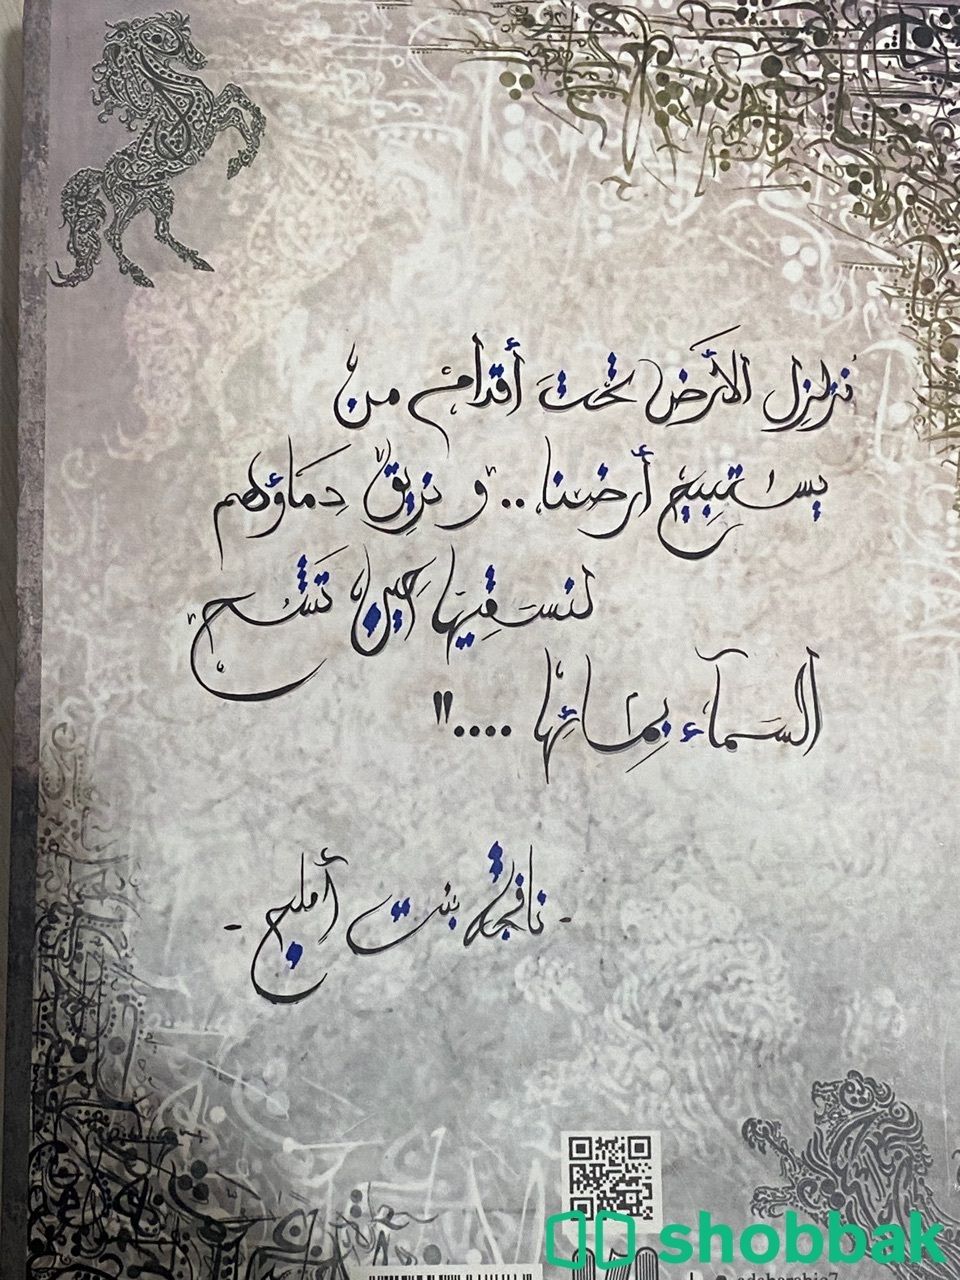 نُزلزِل الأرَض تحتَ أقدام من
يستبيح أرضنا .. و نريق دِمَاؤهم
لنسَقِيَها حِين تَشُح
السَمآء بِمَائِها ...."
- نافجة بنت أملج -
shobbak